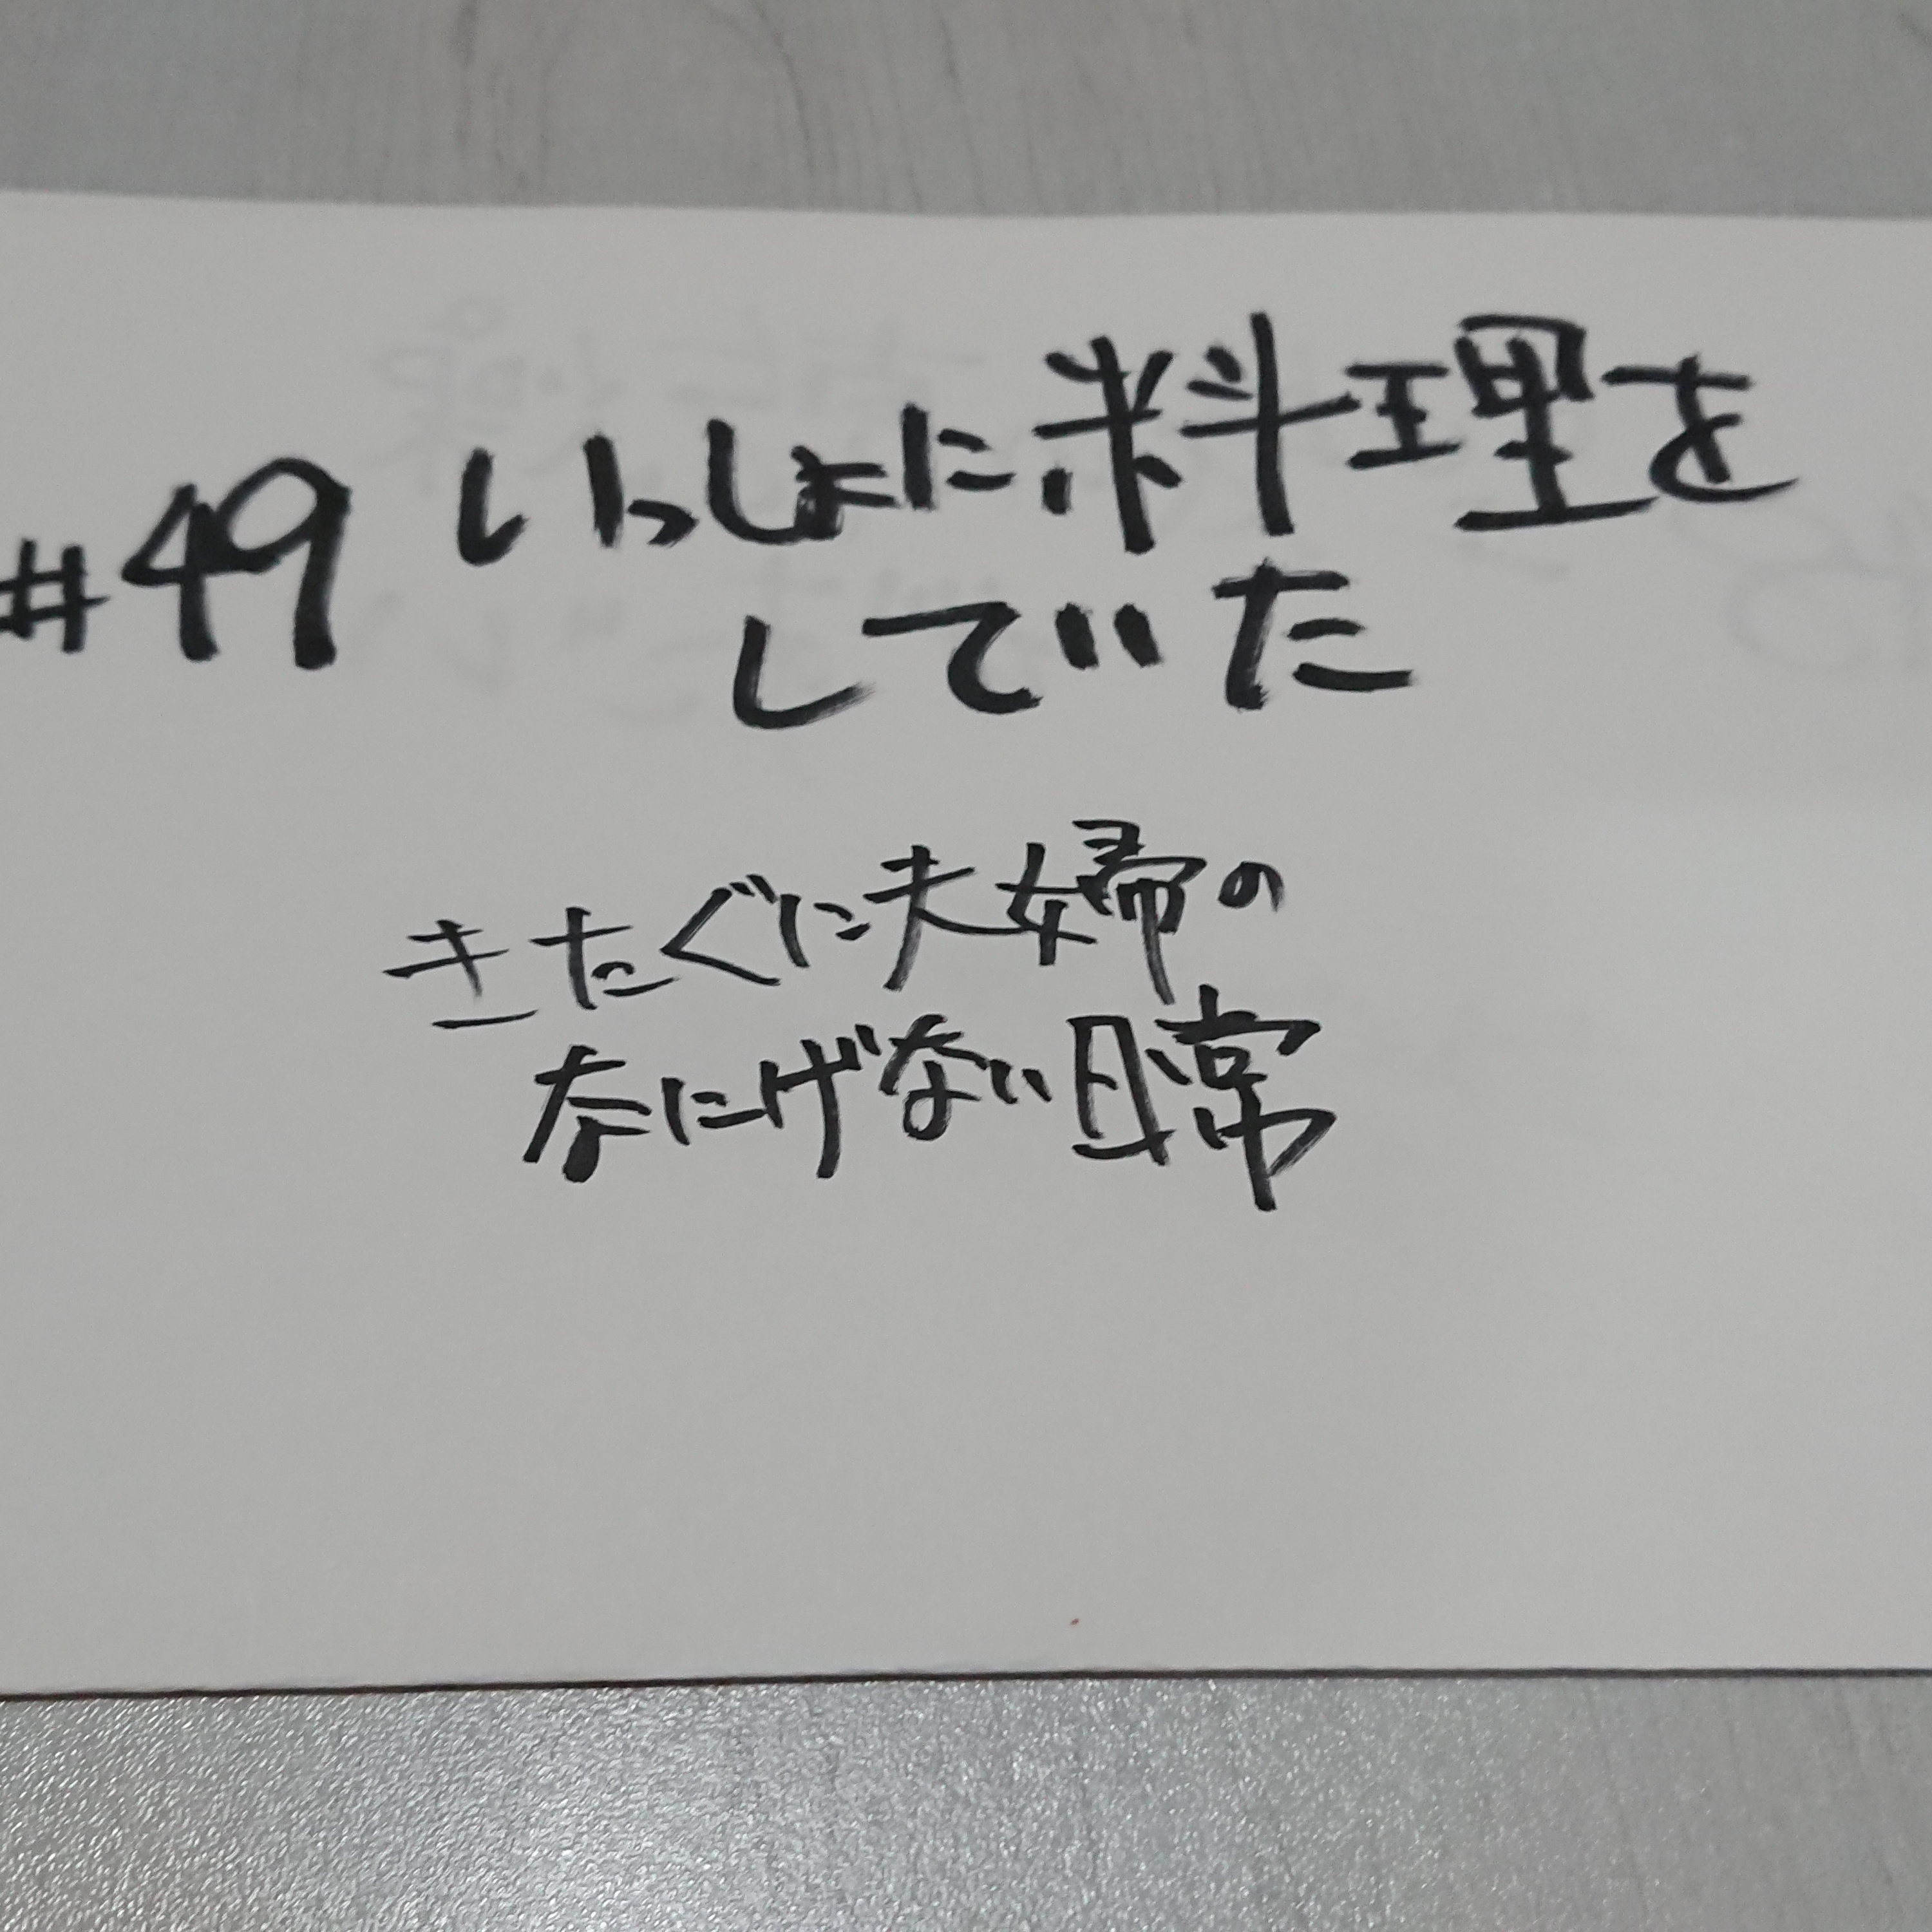 #49 いっしょに料理を
していた
きたぐに夫婦の
なにげない日常